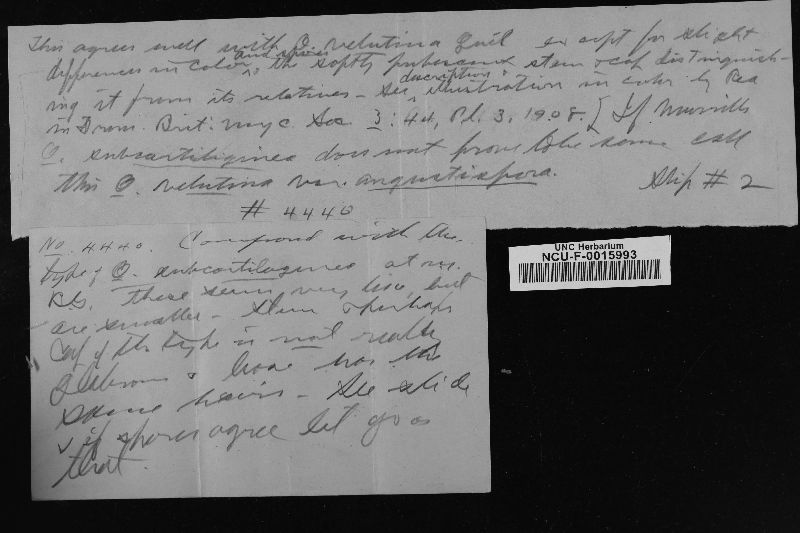 This agrees well with O. velutina Quél except for slight
differences in color and spores, the softly pubescent stem & cap distinguish-
ing it from its relatives - See description & illustration in color by Rea
in Trans. Brit. Myc. Soc. 3: 44, Pl. 3, 1908. If Murrill's
O. subcartilaginea does not prove to be same call
this O. velutina var. angustispora.
Slip # 2
# 4440
No. 4440. Compared with the
type of O. subcartilaginea at N.Y.
B.G. These seem very like, but
are smaller - Stem & perhaps
cap of the type is not really
glabrous & base has the
same hairs - See slide
& if spores agree let go as
that.
UNC Herbarium
NCU-F-0015993